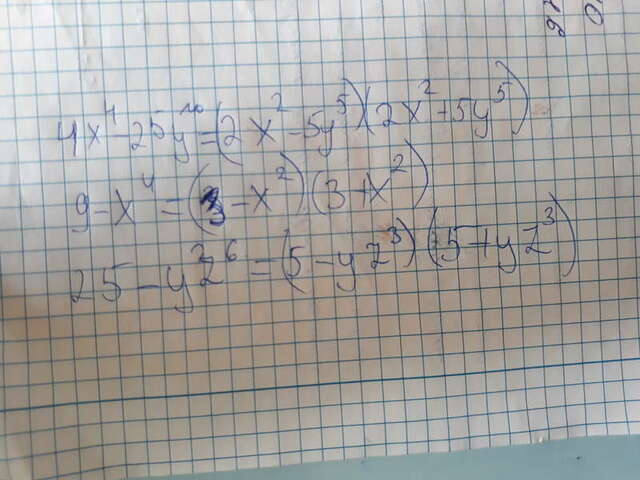 4x⁴-25y¹⁰=(2x²-5y⁵)(2x²+5y⁵)
9-x⁴=(3-x²)(3+x²)
25-y²z⁶=(5-yz³)(5+yz³)